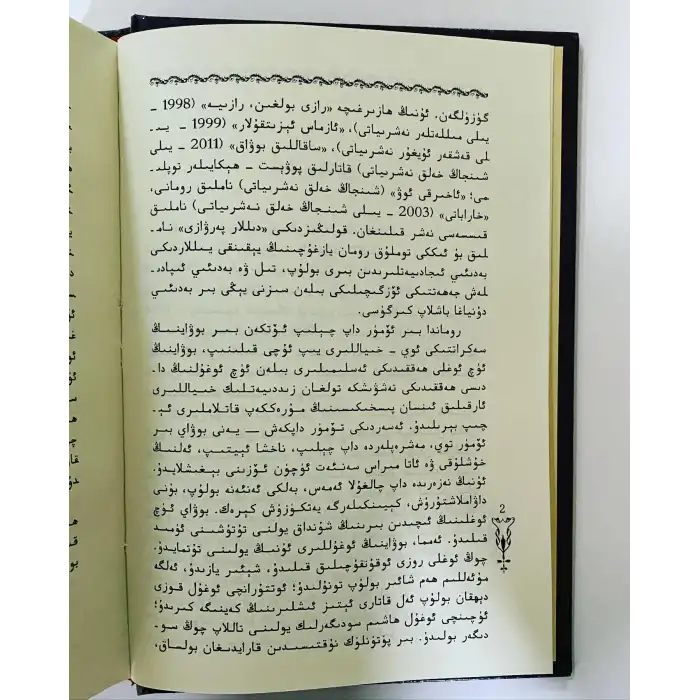 گۈزۈلگەن. ئۇنىڭ ھازىرغىچە «رازى بولغىن، رازىيە» (1998 ـ
يىلى مىللەتلەر نەشرىياتى)، «ئازماس ئېزىتقۇلار» (1999 ـ يىـ
لى قەشقەر ئۇيغۇر نەشرىياتى)، «ساقاللىق بوۋاق» (2011 ـ يىلى
شىنجاڭ خەلق نەشرىياتى) قاتارلىق پوۋېست ـ ھېكايىلەر توپلىـ
مى؛ «ئاخىرقى ئوۋ» (شىنجاڭ خەلق نەشرىياتى) ناملىق رومانى،
«خاراباتى» (2003 ـ يىلى شىنجاڭ خەلق نەشرىياتى) ناملىق
قىسسەسى نەشر قىلىنغان. قولىڭىزدىكى «دىللار پەرۋازى» نامـ
لىق بۇ ئىككى توملۇق رومان يازغۇچىنىڭ يېقىنقى يىللاردىكى
بەدىئىي ئىجادىيەتلىرىدىن بىرى بولۇپ، تىل ۋە بەدىئىي ئىپادىـ
لەش جەھەتتىكى ئۆزگىچىلىكى بىلەن سىزنى يېڭى بىر بەدىئىي
دۇنياغا باشلاپ كىرگۈسى.
روماندا بىر ئۆمۈر داپ چېلىپ ئۆتكەن بىر بوۋاينىڭ
سەكراتتىكى ئوي ـ خىياللىرى يىپ ئۇچى قىلىنىپ، بوۋاينىڭ
ئۈچ ئوغلى ھەققىدىكى ئەسلىمىلىرى بىلەن ئۈچ ئوغۇلنىڭ داـ
دىسى ھەققىدىكى تەشۋىشكە تولغان زىددىيەتلىك خىياللىرى
ئارقىلىق ئىنسان پىسخىكىسىنىڭ مۇرەككەپ قاتلاملىرى ئېـ
چىپ بېرىلىدۇ. ئەسەردىكى تۆمۈر داپكەش — يەنى بوۋاي بىر
ئۆمۈر توي، مەشرەپلەردە داپ چېلىپ، ناخشا ئېيتىپ، ئەلنىڭ
خۇشلۇقى ۋە ئاتا مىراس سەنئەت ئۈچۈن ئۆزىنى بېغىشلايدۇ.
ئۇنىڭ نەزەرىدە داپ چالغۇلا ئەمەس، بەلكى ئەنئەنە بولۇپ، بۇنى
داۋاملاشتۇرۇش، كېيىنكىلەرگە يەتكۈزۈش كېرەك. بوۋاي ئۈچ
ئوغلىنىڭ ئىچىدىن بىرىنىڭ شۇنداق يولنى تۇتۇشىنى ئۈمىد
قىلىدۇ. ئەمما، بوۋاينىڭ ئوغۇللىرى ئۇنىڭ يولىنى تۇتمايدۇ.
چوڭ ئوغلى روزى ئوقۇتقۇچىلىق قىلىدۇ، شېئىر يازىدۇ، ئەلگە
مۇئەللىم ھەم شائىر بولۇپ تونۇلىدۇ؛ ئوتتۇرانچى ئوغۇل قوزى
دېھقان بولۇپ ئەل قاتارى ئېتىز ئىشلىرىنىڭ كەينىگە كىرىدۇ؛
ئۈچىنچى ئوغۇل ھاشىم سودىگەرلىك يولىنى تاللاپ چوڭ سوـ
دىگەر بولىدۇ. بىر پۈتۈنلۈك نۇقتىسىدىن قارايدىغان بولساق،
2